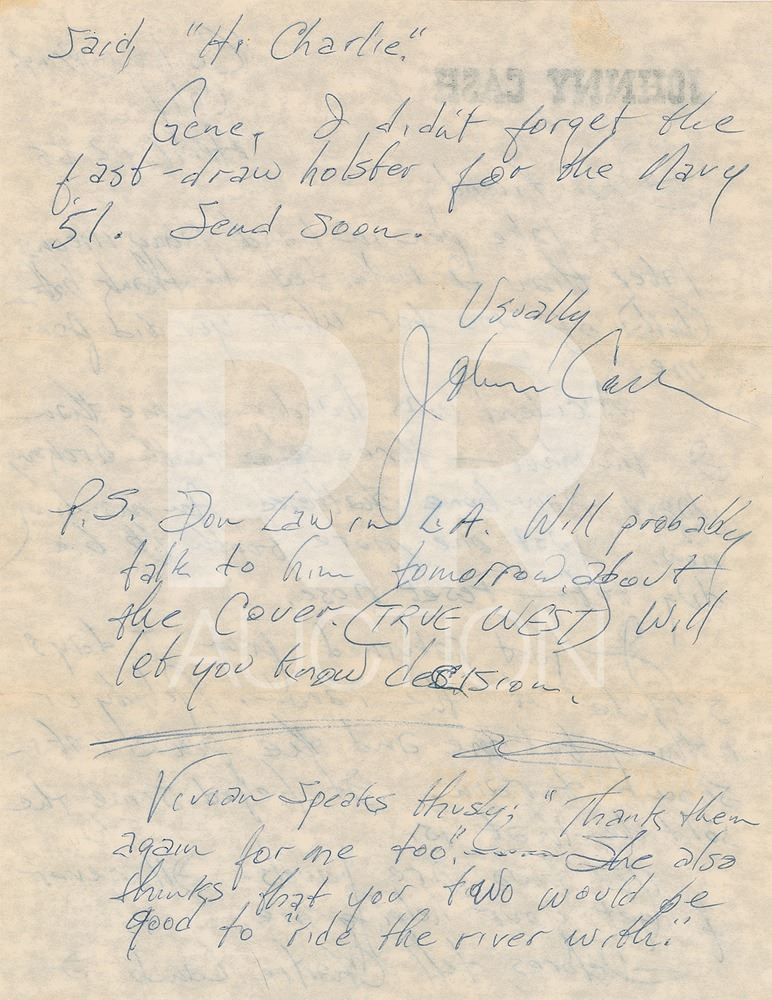 Said, "Hi Charlie."
JOHNNY CASH
Gene, I didn't forget the
fast-draw holster for the Navy
51. Send soon.
Usually
Johnny Cash
P.S. Don Law in L.A. Will probably
talk to him tomorrow, about
the Cover. (TRUE WEST) Will
let you know decision.
Vivian speaks thusly; "Thank them
again for me too". She also
thinks that you two would be
good to "ride the river with."
RR
AUCTION